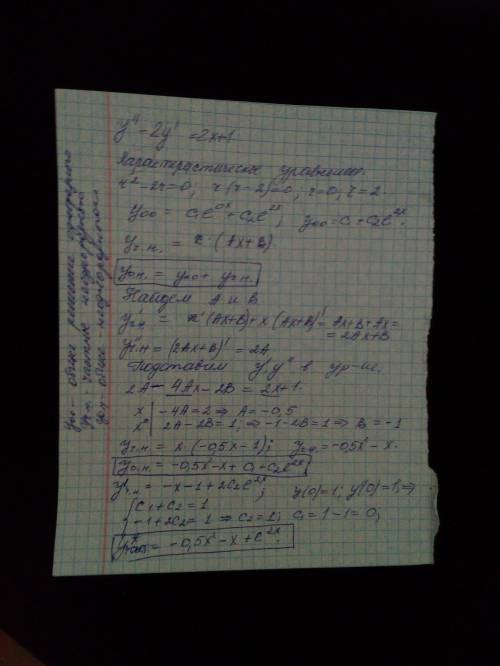 y'' - 2y' = 2x+1.
Характеристическое уравнение.
r² - 2r = 0; r(r-2)=0, r=0, r=2.
yоо = C₁e^{0x} + C₂e^{2x}; yоо = C₁ + C₂e^{2x}.
yч.н. = x·(Ax+B)
yо.н. = yоо + yч.н.
Найдем A и B
y'ч.н = x'(Ax+B)+x(Ax+B)' = Ax+B+Ax=
= 2Ax+B
y''ч.н = (2Ax+B)' = 2A
Подставим y', y'' в ур-ие.
2A - 4Ax - 2B = 2x+1.
x | -4A=2 ⇒ A=-0,5
x⁰ | 2A-2B=1; ⇒ -1-2B=1 ⇒ B=-1
yч.н. = x·(-0,5x-1); yч.н. = -0,5x² - x.
yо.н. = -0,5x² - x + C₁ + C₂e^{2x}
y'ч.н. = -x - 1 + 2C₂e^{2x}; y(0)=1; y'(0)=1; ⇒
{ C₁+C₂=1
-1+2C₂=1 ⇒ C₂=1; C₁=1-1=0;
= -0,5x² - x + e^{2x}.
yоо - общее решение однородного
yч.н. - частное неоднородного
yон общее неоднородного